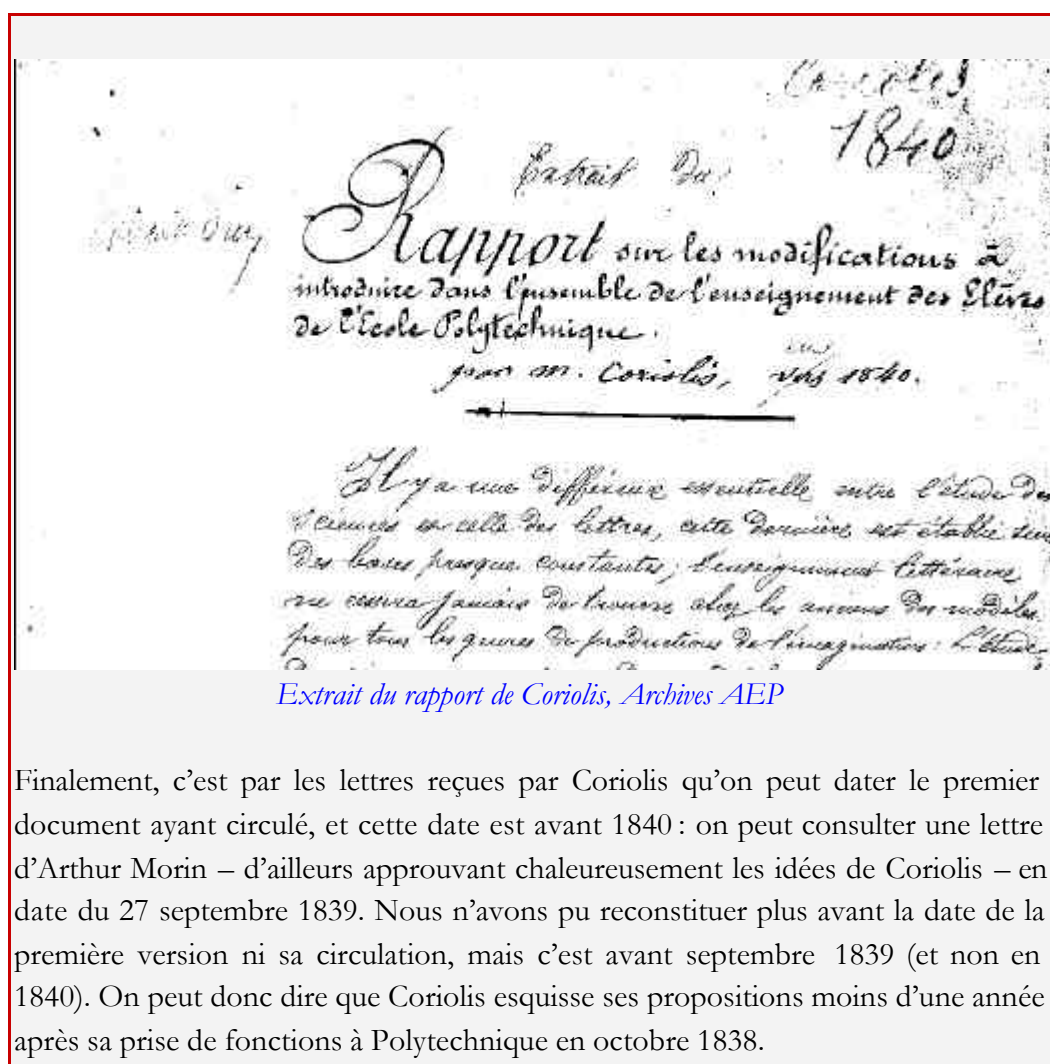 Coriolis
1840
Extrait du
Rapport sur les modifications à
introduire dans l'ensemble de l'enseignement des Elèves
de l'Ecole Polytechnique.
par m. Coriolis, vers 1840.
Il y a une différence essentielle entre l'étude des
sciences et celle des lettres, cette dernière est établie sur
des bases presque constantes; l'enseignement littéraire
ne cessera jamais de trouver chez les anciens des modèles
pour tous les genres de productions de l'imagination: L'étude
Extrait du rapport de Coriolis, Archives AEP
Finalement, c'est par les lettres reçues par Coriolis qu'on peut dater le premier
document ayant circulé, et cette date est avant 1840 : on peut consulter une lettre
d'Arthur Morin – d'ailleurs approuvant chaleureusement les idées de Coriolis – en
date du 27 septembre 1839. Nous n'avons pu reconstituer plus avant la date de la
première version ni sa circulation, mais c'est avant septembre 1839 (et non en
1840). On peut donc dire que Coriolis esquisse ses propositions moins d'une année
après sa prise de fonctions à Polytechnique en octobre 1838.